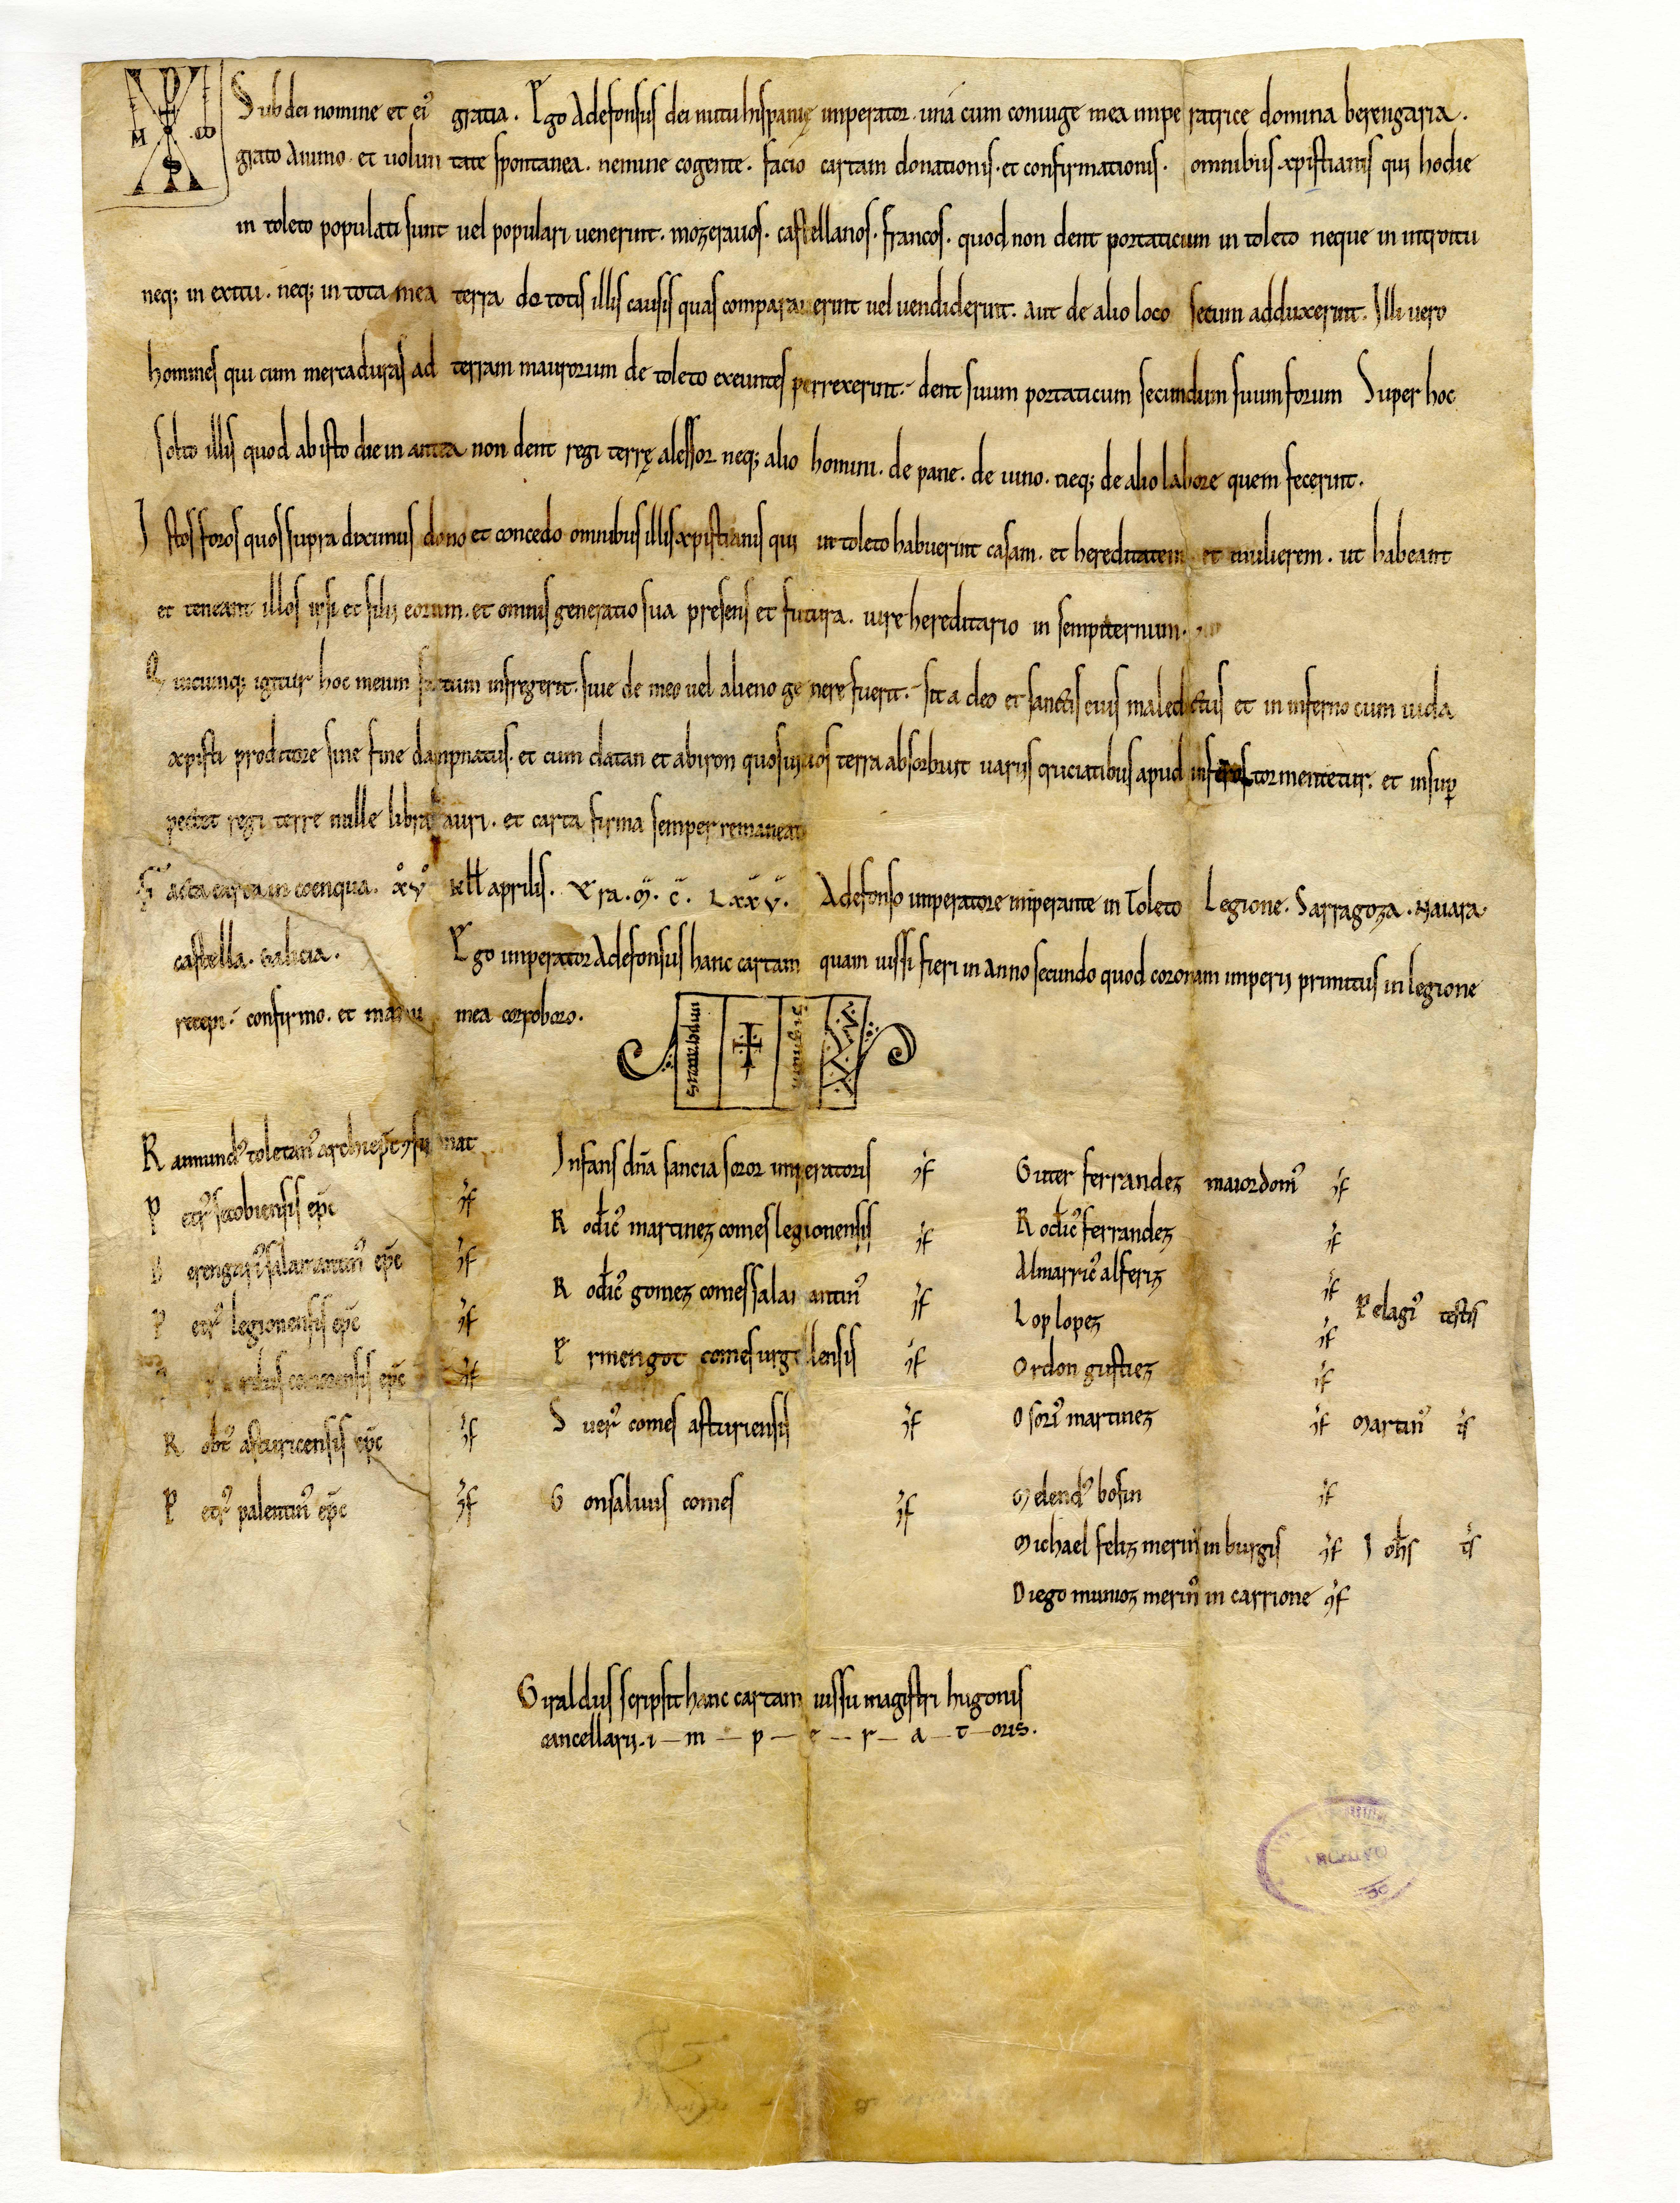 Sub dei nomine et ei᾽ gratia. Ego Adefonsus dei nutu hispanię imperator. una cum coniuge mea imperatrice domina berengaria.
grato animo. et voluntate spontanea. nemine cogente. facio cartam donationis. et confirmationis. omnibus xpistianis qui hodie
in toleto populati sunt vel populari venerint. mozeravos. castellanos. francos. quod non dent portaticum in toleto neque in introitu
neq; in exitu. neq; in tota mea terra de totis illis causis quas comparaverint vel vendiderint. aut de alio loco secum adduxerint. Illi vero
homines qui cum mercaduras ad terram maurorum de toleto exeuntes perrexerint. dent suum portaticum secundum suum forum Super hoc
solto illis quod ab isto die in antea non dent regi terrę alessor neq; alio homini. de pane. de vino. neq; de alio labore quem fecerint.
Istos foros quos supra diximus dono et concedo omnibus illis xpistianis qui in toleto habuerint casam. et hereditatem et mulierem. ut habeant
et teneant illos ipsi et filii eorum. et omnis generatio sua presens et futura. iure hereditario in sempiternum.
Quicunq; igitur hoc meum factum infregerit. sive de meo vel alieno genere fuerit. sit a deo et sanctis eius maledictus et in inferno cum iuda
xpisti proditore sine fine dampnatus. et cum datan et abiron quos vivos terra absorbuit variis cruciatibus apud inferos tormentetur. et insup̄
pectet regi terre mille libras auri. et carta firma semper remaneat
Facta carta in coenqua. xv᾽ kłł aprilis. Era. M. C. LXXV. Adefonso imperatore imperante in Toleto Legione. Sarragoza. Naiara.
castella. Galicia. Ego imperator Adefonsus hanc cartam quam iussi fieri in anno secundo quod coronam imperii primitus in legione
recepi. confirmo. et manu mea corroboro.
imperatoris signum
Raimund᾽ toletan᾽ archiep̄c ꝯfirmat
Petr᾽ secobiensis ep̄c ꝯf
Berengari᾽ salamantin᾽ ep̄c ꝯf
Petr᾽ legionensis ep̄c ꝯf
ep̄c ꝯf
Robt᾽ asturicensis ep̄c ꝯf
Petr᾽ palentin᾽ ep̄c ꝯf
Infans dn̄a sancia soror imperatoris ꝯf
Rodic᾽ martinez comes legionensis ꝯf
Rodic᾽ gomez comes salamantin᾽ ꝯf
Ermengot comes urgellensis ꝯf
Suer᾽ comes asturiensis ꝯf
Gonsalvus comes ꝯf
Guter ferrandez maiordom᾽ ꝯf
Rodic᾽ ferrandez ꝯf
Almarric᾽ alferiz ꝯf
Lop lopez ꝯf
Ordon gustiez ꝯf
Osori᾽ martinez ꝯf
Melend᾽ bofin ꝯf
Michael feliz merin᾽ in burgis ꝯf
Diego munioz merin᾽ in carrione ꝯf
Pelagi᾽ testis
Martin᾽ ts
Iohs ts
Giraldus scripsit hanc cartam iussu magistri hugonis
cancellarii. i—m—p—e—r—a—t—oris.
ARCHIVO